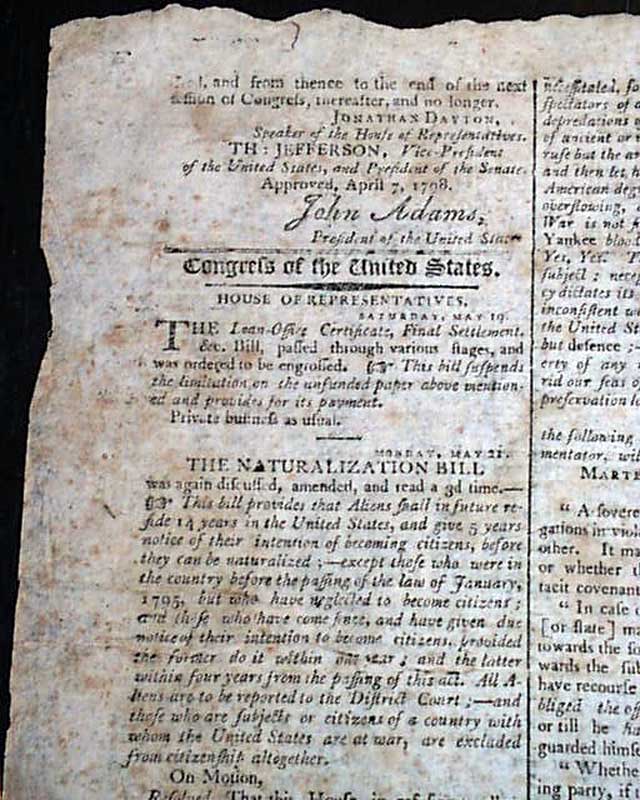 and from thence to the end of the next
session of Congress, thereafter, and no longer.
JONATHAN DAYTON,
Speaker of the House of Representatives.
TH: JEFFERSON, Vice-President
of the United States, and President of the Senate.
Approved, April 7, 1798.
John Adams,
President of the United States
Congress of the United States.
HOUSE OF REPRESENTATIVES,
SATURDAY, MAY 19.
THE Loan-Office Certificate, Final Settlement,
&c. Bill, passed through various stages, and
was ordered to be engrossed. ☞ This bill suspends
the limitation on the unfunded paper above mention-
ed and provides for its payment.
Private business as usual.
MONDAY, MAY 21.
THE NATURALIZATION BILL
was again discussed, amended, and read a 3d time.—
☞ This bill provides that Aliens shall in future re-
side 14 years in the United States, and give 5 years
notice of their intention of becoming citizens, before
they can be naturalized ;—except those who were in
the country before the passing of the law of January,
1795, but who have neglected to become citizens ;
and those who have come since, and have given due
notice of their intention to become citizens, provided
the former do it within one year ; and the latter
within four years from the passing of this act. All A-
liens are to be reported to the District Court ;—and
those who are subjects or citizens of a country with
whom the United States are at war, are excluded
from citizenship altogether.
On Motion,
Resolved That this House, in
necessitated, fo
spectators of a
depredations o
of ancient or
ruse but the ar
and then let h
American deg
overflowing,
War is not
Yankee blood
Yes, Yes. T
subject ; nece
cy dictates its
inconsistent w
the United St
but defence ;—
erty of any
rid our seas o
preservation
the following
mentator, wil
MARTE
“ A sovere
gations in viol
other. It ma
or whether th
tacit covenant
“ In case
[or state] ma
towards the so
wards the sub
have recourse
bliged the off
or till he ha
guarded himse
“ Whethe
ing party, if